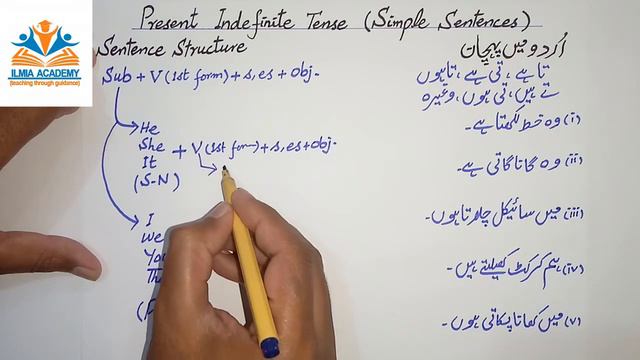 Present Indefinite Tense (Simple Sentences)
ILMIA ACADEMY
(teaching through guidance)
Sentence Structure
Sub + V (1st form) + s, es + obj.
He
She
It
(S-N)
+ V (1st form) + s, es + obj.
I
We
اُردو میں پہچان
تا ہے، تی ہے، تا ہوں
تے ہیں، تی ہوں، وغیرہ
(i) وہ خط لکھتا ہے۔
(ii) وہ گانا گاتی ہے۔
(iii) میں سائیکل چلاتا ہوں۔
(iv) ہم کرکٹ کھیلتے ہیں۔
(v) میں کھانا پکاتی ہوں۔